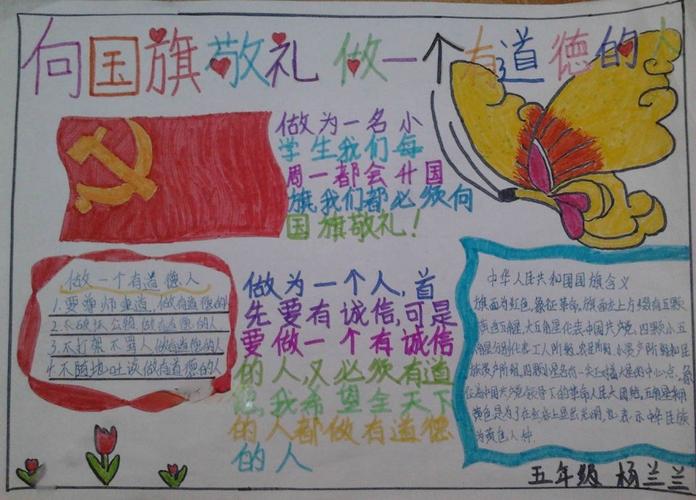 向国旗敬礼 做一个有道德的人
做为一名小
学生我们每
周一都会升国
旗我们都必须向
国旗敬礼!
做一个有道德人
1.要尊师重道,做有道德的人
2.不破坏公物,做有道德的人
3.不打架不骂人做有道德的人
4.不随地吐谈做有道德的人
做为一个人,首
先要有诚信,可是
要做一个有诚信
的人,又必须有道
德,我希望全天下
的人都做有道德
的人
中华人民共和国国旗含义
旗面为红色,象征革命,旗面左上方缀有五颗
黄色五角星,大五角星代表中国共产党,四颗小五
角星分别代表工人阶级,农民阶级,小资产阶级和民
族资产阶级,四颗小星各有一尖正对着大星的中心点,象
征着中国共产党领导下的革命人民大团结,五角星采用
黄色是为了在红地上显出光明,也表示中华民族
为黄色人种.
五年级 杨兰兰